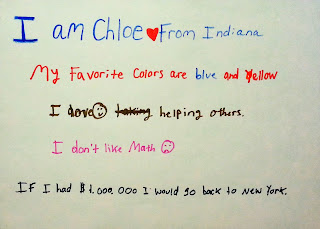 I am Chloe From Indiana
My Favorite Colors are blue and Yellow
I love helping others.
I don't like Math
If I had $1.000.000 I would go back to New York.